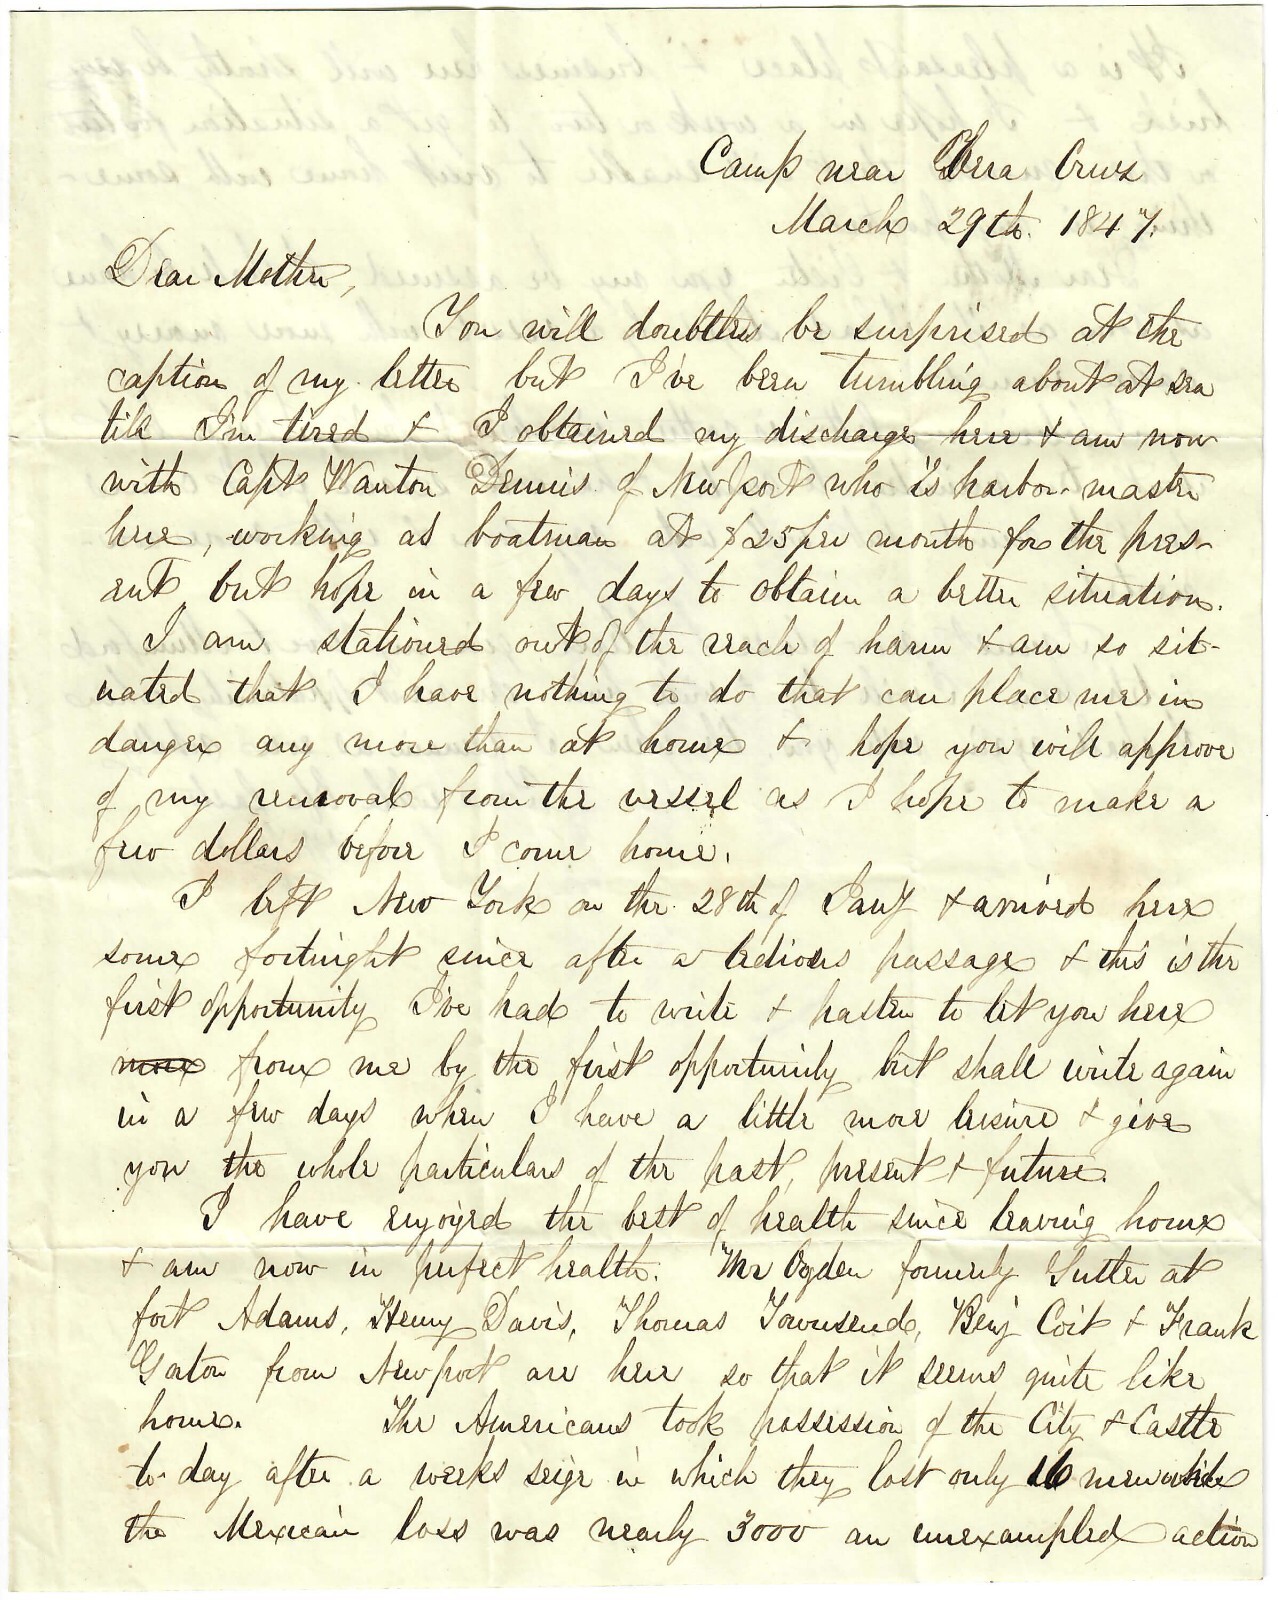 Camp near Vera Cruz
March 29th. 1847.
Dear Mother,
You will doubtless be surprised at the
caption of my letter but I've been tumbling about at sea
till I'm tired & I obtained my discharge here & am now
with Capt Wanton Dennis of Newport who is harbor-master
here, working as boatman at $25 per month for the pres-
ent but hope in a few days to obtain a better situation.
I am stationed out of the reach of harm & am so sit-
uated that I have nothing to do that can place me in
danger any more than at home & hope you will approve
of my removal from the vessel as I hope to make a
few dollars before I come home.
I left New York on the 28th of Jany & arrived here
some fortnight since after a tedious passage & this is the
first opportunity I've had to write & hasten to let you here
more from me by the first opportunity but shall write again
in a few days when I have a little more leisure & give
you the whole particulars of the past, present & future.
I have enjoyed the best of health since leaving home
& am now in perfect health. Mr Ogden formerly Sutler at
fort Adams, Henry Davis, Thomas Townsend, Benj Coit & Frank
Gorton from Newport are here so that it seems quite like
home. The Americans took possession of the City & Castle
to-day after a weeks seige in which they lost only 16 men while
the Mexican loss was nearly 3000 an unexampled action